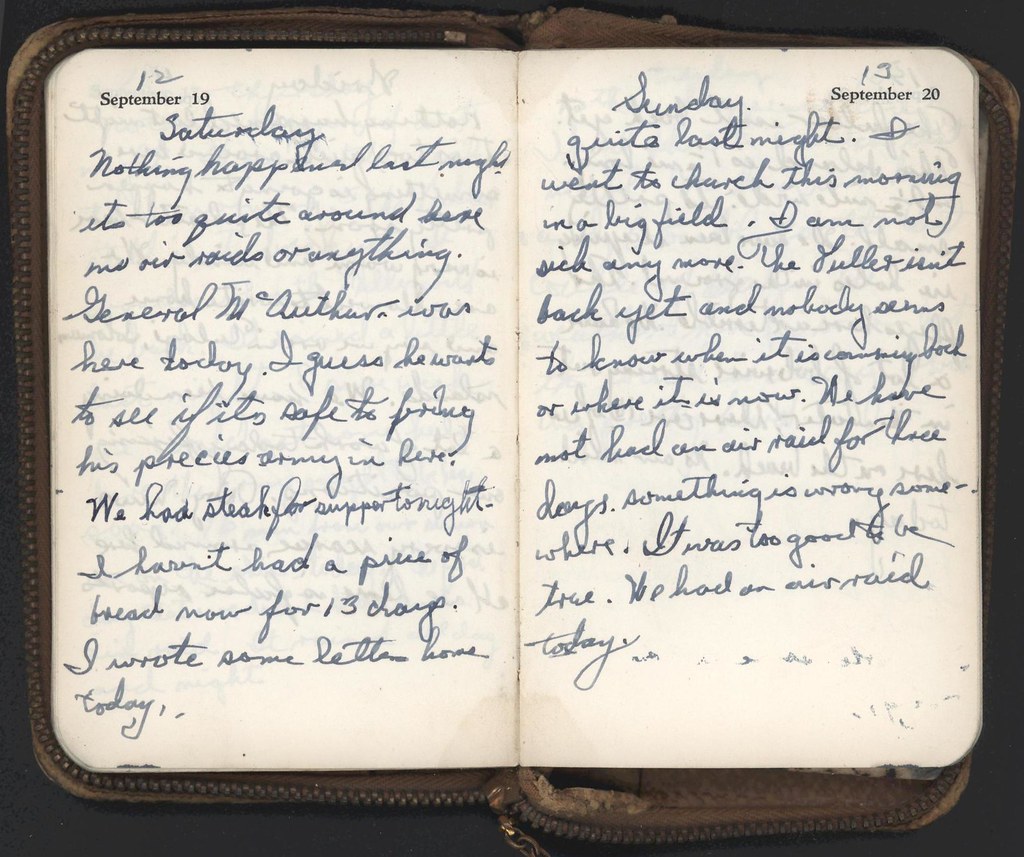 12
September 19
Saturday
Nothing happened last night
its too quite around here
no air raids or anything.
General McAuthur was
here today. I guess he wants
to see if its safe to bring
his precies army in here.
We had steak for supper tonight.
I havn't had a piece of
bread now for 13 days.
I wrote some letters home
today.
13
September 20
Sunday.
quite last night. I
went to church this morning
in a big field. I am not
sick any more. The Fuller isn't
back yet and nobody seems
to know when it is comming back
or where it is now. We have
not had an air raid for three
days. something is wrong some-
where. It was too good to be
true. We had an air raid
today.